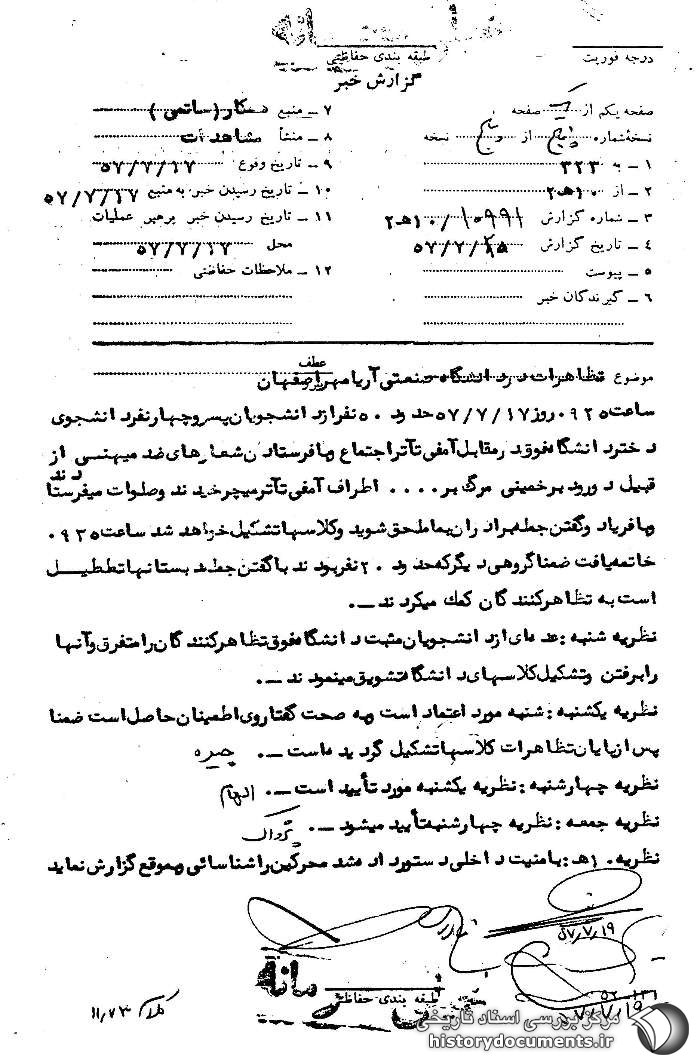 طبقه بندی حفاظتی
درجه فوریت
گزارش خبر
صفحه یکم از یک صفحه
نسخه شماره پنج از پنج نسخه
۱ ـ به ۳۲۳
۲ ـ از ۱۰هـ۲
۳ ـ شماره گزارش ۱۰۹۹۱/۱۰هـ۲
۴ ـ تاریخ گزارش ۵۷/۷/۱۸
۵ ـ پیوست
۶ ـ گیرندگان خبر
۷ ـ منبع همکار (ساتمی)
۸ ـ منشأ مشاهدات
۹ ـ تاریخ وقوع ۵۷/۷/۱۷
۱۰ ـ تاریخ رسیدن خبر به منبع ۵۷/۷/۱۷
۱۱ ـ تاریخ رسیدن خبر برهبر عملیات
محل ۵۷/۷/۱۷
۱۲ ـ ملاحظات حفاظتی
عطف
موضوع تظاهرات در دانشگاه صنعتی آریامهر اصفهان
ساعت ۰۹۲۵ روز ۵۷/۷/۱۷ حدود ۵۰ نفر از دانشجویان پسر و چهار نفر دانشجوی
دختر دانشگاه فوق در مقابل آمفی تآتر اجتماع و با فرستادن شعارهای ضد میهنی از
قبیل درود بر خمینی مرگ بر .... اطراف آمفی تآتر میچرخیدند و صلوات میفرستادند
و با فریاد و گفتن جمله برادران بما ملحق شوید و کلاسها تشکیل نخواهد شد ساعت ۰۹۳۵
خاتمه یافت ضمنا گروهی دیگر که حدود ۲۰ نفر بودند با گفتن جمله دبستانها تعطیل
است به تظاهر کنندگان کمک میکردند ـ.
نظریه شنبه : عده ای از دانشجویان مثبت دانشگاه فوق تظاهر کنندگان را متفرق و آنها
را برفتن و تشکیل کلاسهای دانشگاه تشویق مینمودند ـ.
نظریه یکشنبه : شنبه مورد اعتماد است و به صحت گفتار وی اطمینان حاصل است ضمنا
پس از پایان تظاهرات کلاسها تشکیل گردیده است ـ. چیره
نظریه چهارشنبه : نظریه یکشنبه مورد تأیید است ـ. الهام
نظریه جمعه : نظریه چهارشنبه تأیید میشود ـ.
نظریه ۱۰هـ : بامنیت داخلی دستور داده شد محرکین را شناسائی و بموقع گزارش نماید
۵۷/۷/۱۹
طبقه بندی حفاظتی
۵۷/۷/۱۹
۱۱/۷۳
مرکز بررسی اسناد تاریخی
historydocuments.ir